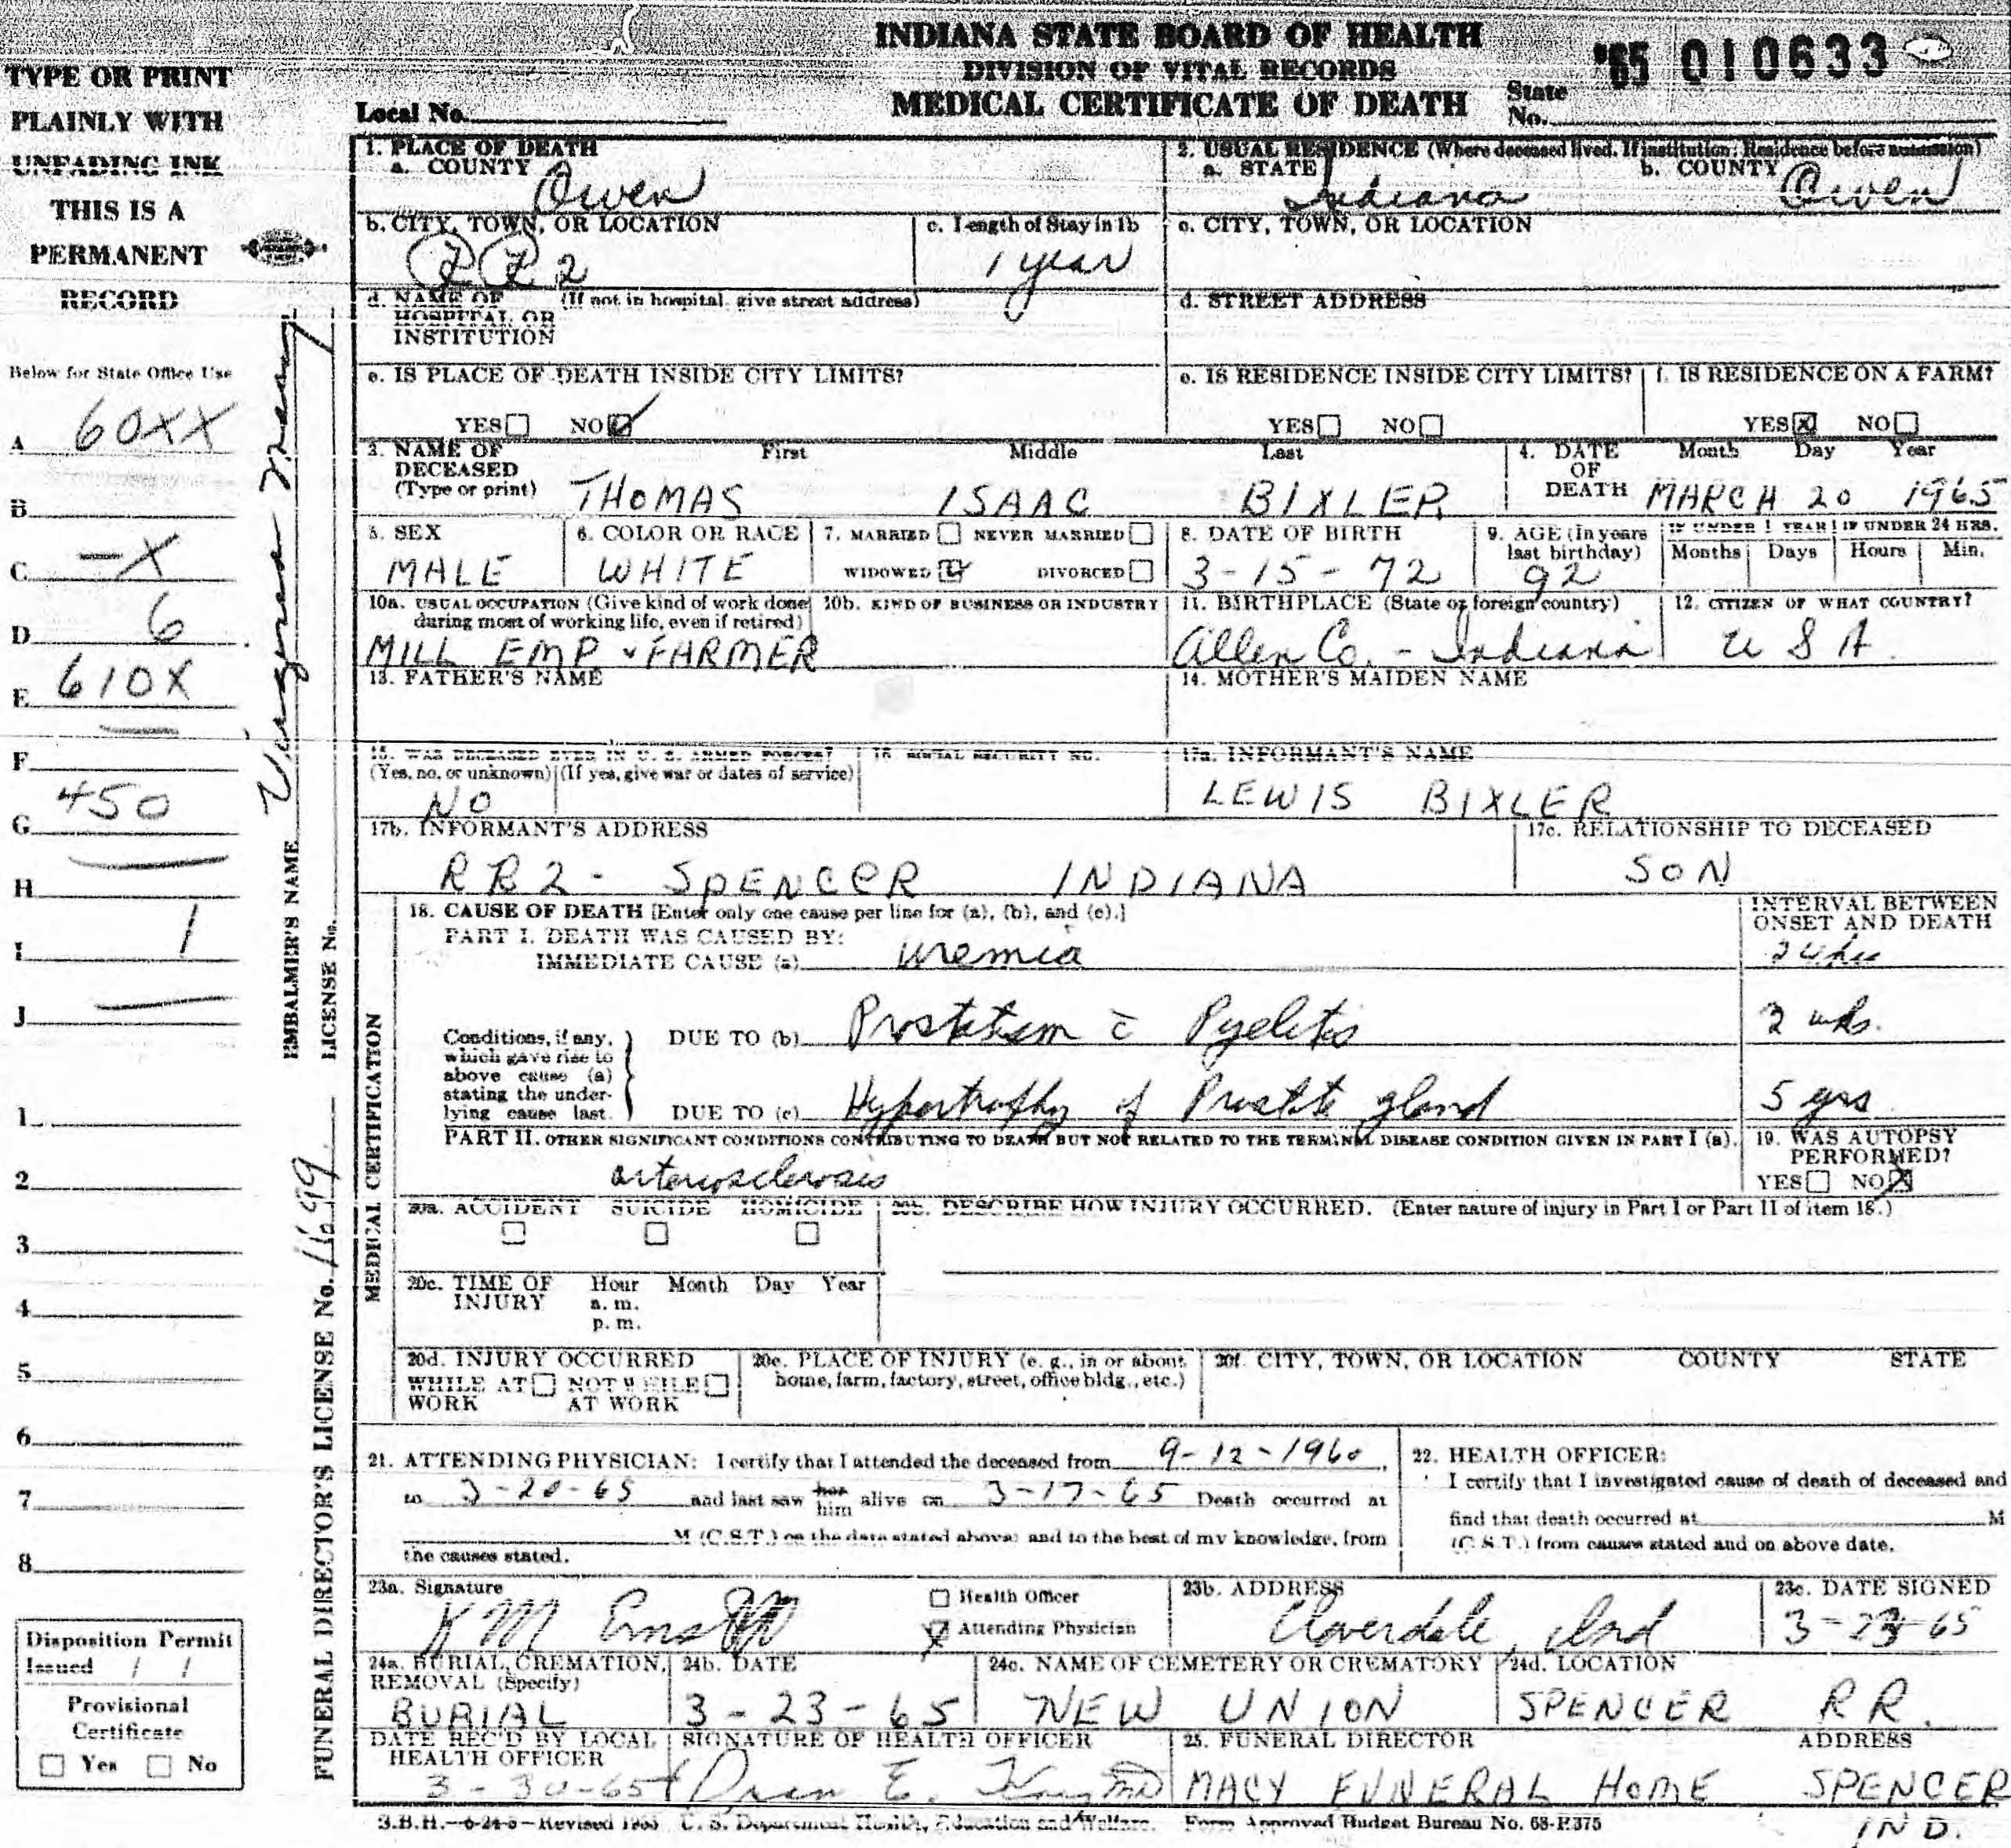 INDIANA STATE BOARD OF HEALTH
DIVISION OF VITAL RECORDS
MEDICAL CERTIFICATE OF DEATH
'65 010633
State No.
Local No.
TYPE OR PRINT
PLAINLY WITH
UNFADING INK
THIS IS A
PERMANENT
RECORD
Below for State Office Use
A 60XX
B
C -X
D 6
E 610X
F
G 450
H
I 1
J
1
2
3
4
5
6
7
8
Disposition Permit
Issued / /
Provisional
Certificate
Yes No
EMBALMER'S NAME
LICENSE No.
FUNERAL DIRECTOR'S LICENSE No. 1699
1. PLACE OF DEATH
a. COUNTY Owen
2. USUAL RESIDENCE (Where deceased lived. If institution: Residence before admission)
a. STATE Indiana b. COUNTY Owen
b. CITY, TOWN, OR LOCATION RR2
c. Length of Stay in 1b 1 year
c. CITY, TOWN, OR LOCATION
d. NAME OF (If not in hospital, give street address)
HOSPITAL OR
INSTITUTION
d. STREET ADDRESS
e. IS PLACE OF DEATH INSIDE CITY LIMITS?
YES NO
e. IS RESIDENCE INSIDE CITY LIMITS?
YES NO
f. IS RESIDENCE ON A FARM?
YES X NO
3. NAME OF DECEASED (Type or print)
First Middle Last
THOMAS ISAAC BIXLER
4. DATE OF DEATH Month Day Year
MARCH 20 1965
5. SEX MALE
6. COLOR OR RACE WHITE
7. MARRIED NEVER MARRIED
WIDOWED DIVORCED
8. DATE OF BIRTH 3-15-72
9. AGE (In years last birthday) 92
IF UNDER 1 YEAR IF UNDER 24 HRS.
Months Days Hours Min.
10a. USUAL OCCUPATION (Give kind of work done during most of working life, even if retired)
MILL EMP. & FARMER
10b. KIND OF BUSINESS OR INDUSTRY
11. BIRTHPLACE (State or foreign country)
Allen Co. - Indiana
12. CITIZEN OF WHAT COUNTRY?
U S A
13. FATHER'S NAME
14. MOTHER'S MAIDEN NAME
15. WAS DECEASED EVER IN U. S. ARMED FORCES?
(Yes, no, or unknown) (If yes, give war or dates of service)
NO
16. SOCIAL SECURITY NO.
17a. INFORMANT'S NAME
LEWIS BIXLER
17b. INFORMANT'S ADDRESS
RR2 - SPENCER INDIANA
17c. RELATIONSHIP TO DECEASED
SON
MEDICAL CERTIFICATION
18. CAUSE OF DEATH [Enter only one cause per line for (a), (b), and (c).]
INTERVAL BETWEEN ONSET AND DEATH
PART I. DEATH WAS CAUSED BY:
IMMEDIATE CAUSE (a) Uremia 24 hrs
Conditions, if any, which gave rise to above cause (a) stating the underlying cause last.
DUE TO (b) Prostatism c̄ Pyelitis 2 wks.
DUE TO (c) Hypertrophy of Prostate gland 5 yrs
PART II. OTHER SIGNIFICANT CONDITIONS CONTRIBUTING TO DEATH BUT NOT RELATED TO THE TERMINAL DISEASE CONDITION GIVEN IN PART I (a).
arteriosclerosis
19. WAS AUTOPSY PERFORMED?
YES NO X
20a. ACCIDENT SUICIDE HOMICIDE
20b. DESCRIBE HOW INJURY OCCURRED. (Enter nature of injury in Part I or Part II of item 18.)
20c. TIME OF INJURY Hour Month Day Year
a. m.
p. m.
20d. INJURY OCCURRED
WHILE AT WORK NOT WHILE AT WORK
20e. PLACE OF INJURY (e. g., in or about home, farm, factory, street, office bldg., etc.)
20f. CITY, TOWN, OR LOCATION COUNTY STATE
21. ATTENDING PHYSICIAN: I certify that I attended the deceased from 9-12-1960,
to 3-20-65 and last saw her him alive on 3-17-65 Death occurred at
M (C.S.T.) on the date stated above; and to the best of my knowledge, from
the causes stated.
22. HEALTH OFFICER:
I certify that I investigated cause of death of deceased and
find that death occurred at M
(C.S.T.) from causes stated and on above date.
23a. Signature
Health Officer
X Attending Physician
23b. ADDRESS
Cloverdale, Ind
23c. DATE SIGNED
3-23-65
24a. BURIAL, CREMATION, REMOVAL (Specify)
BURIAL
24b. DATE
3-23-65
24c. NAME OF CEMETERY OR CREMATORY
NEW UNION
24d. LOCATION
SPENCER RR.
DATE REC'D BY LOCAL HEALTH OFFICER
3-30-65
SIGNATURE OF HEALTH OFFICER
25. FUNERAL DIRECTOR ADDRESS
MACY FUNERAL HOME SPENCER IND.
S.B.H.—6-24-5—Revised 1955 U. S. Department Health, Education and Welfare. Form Approved Budget Bureau No. 68-R375